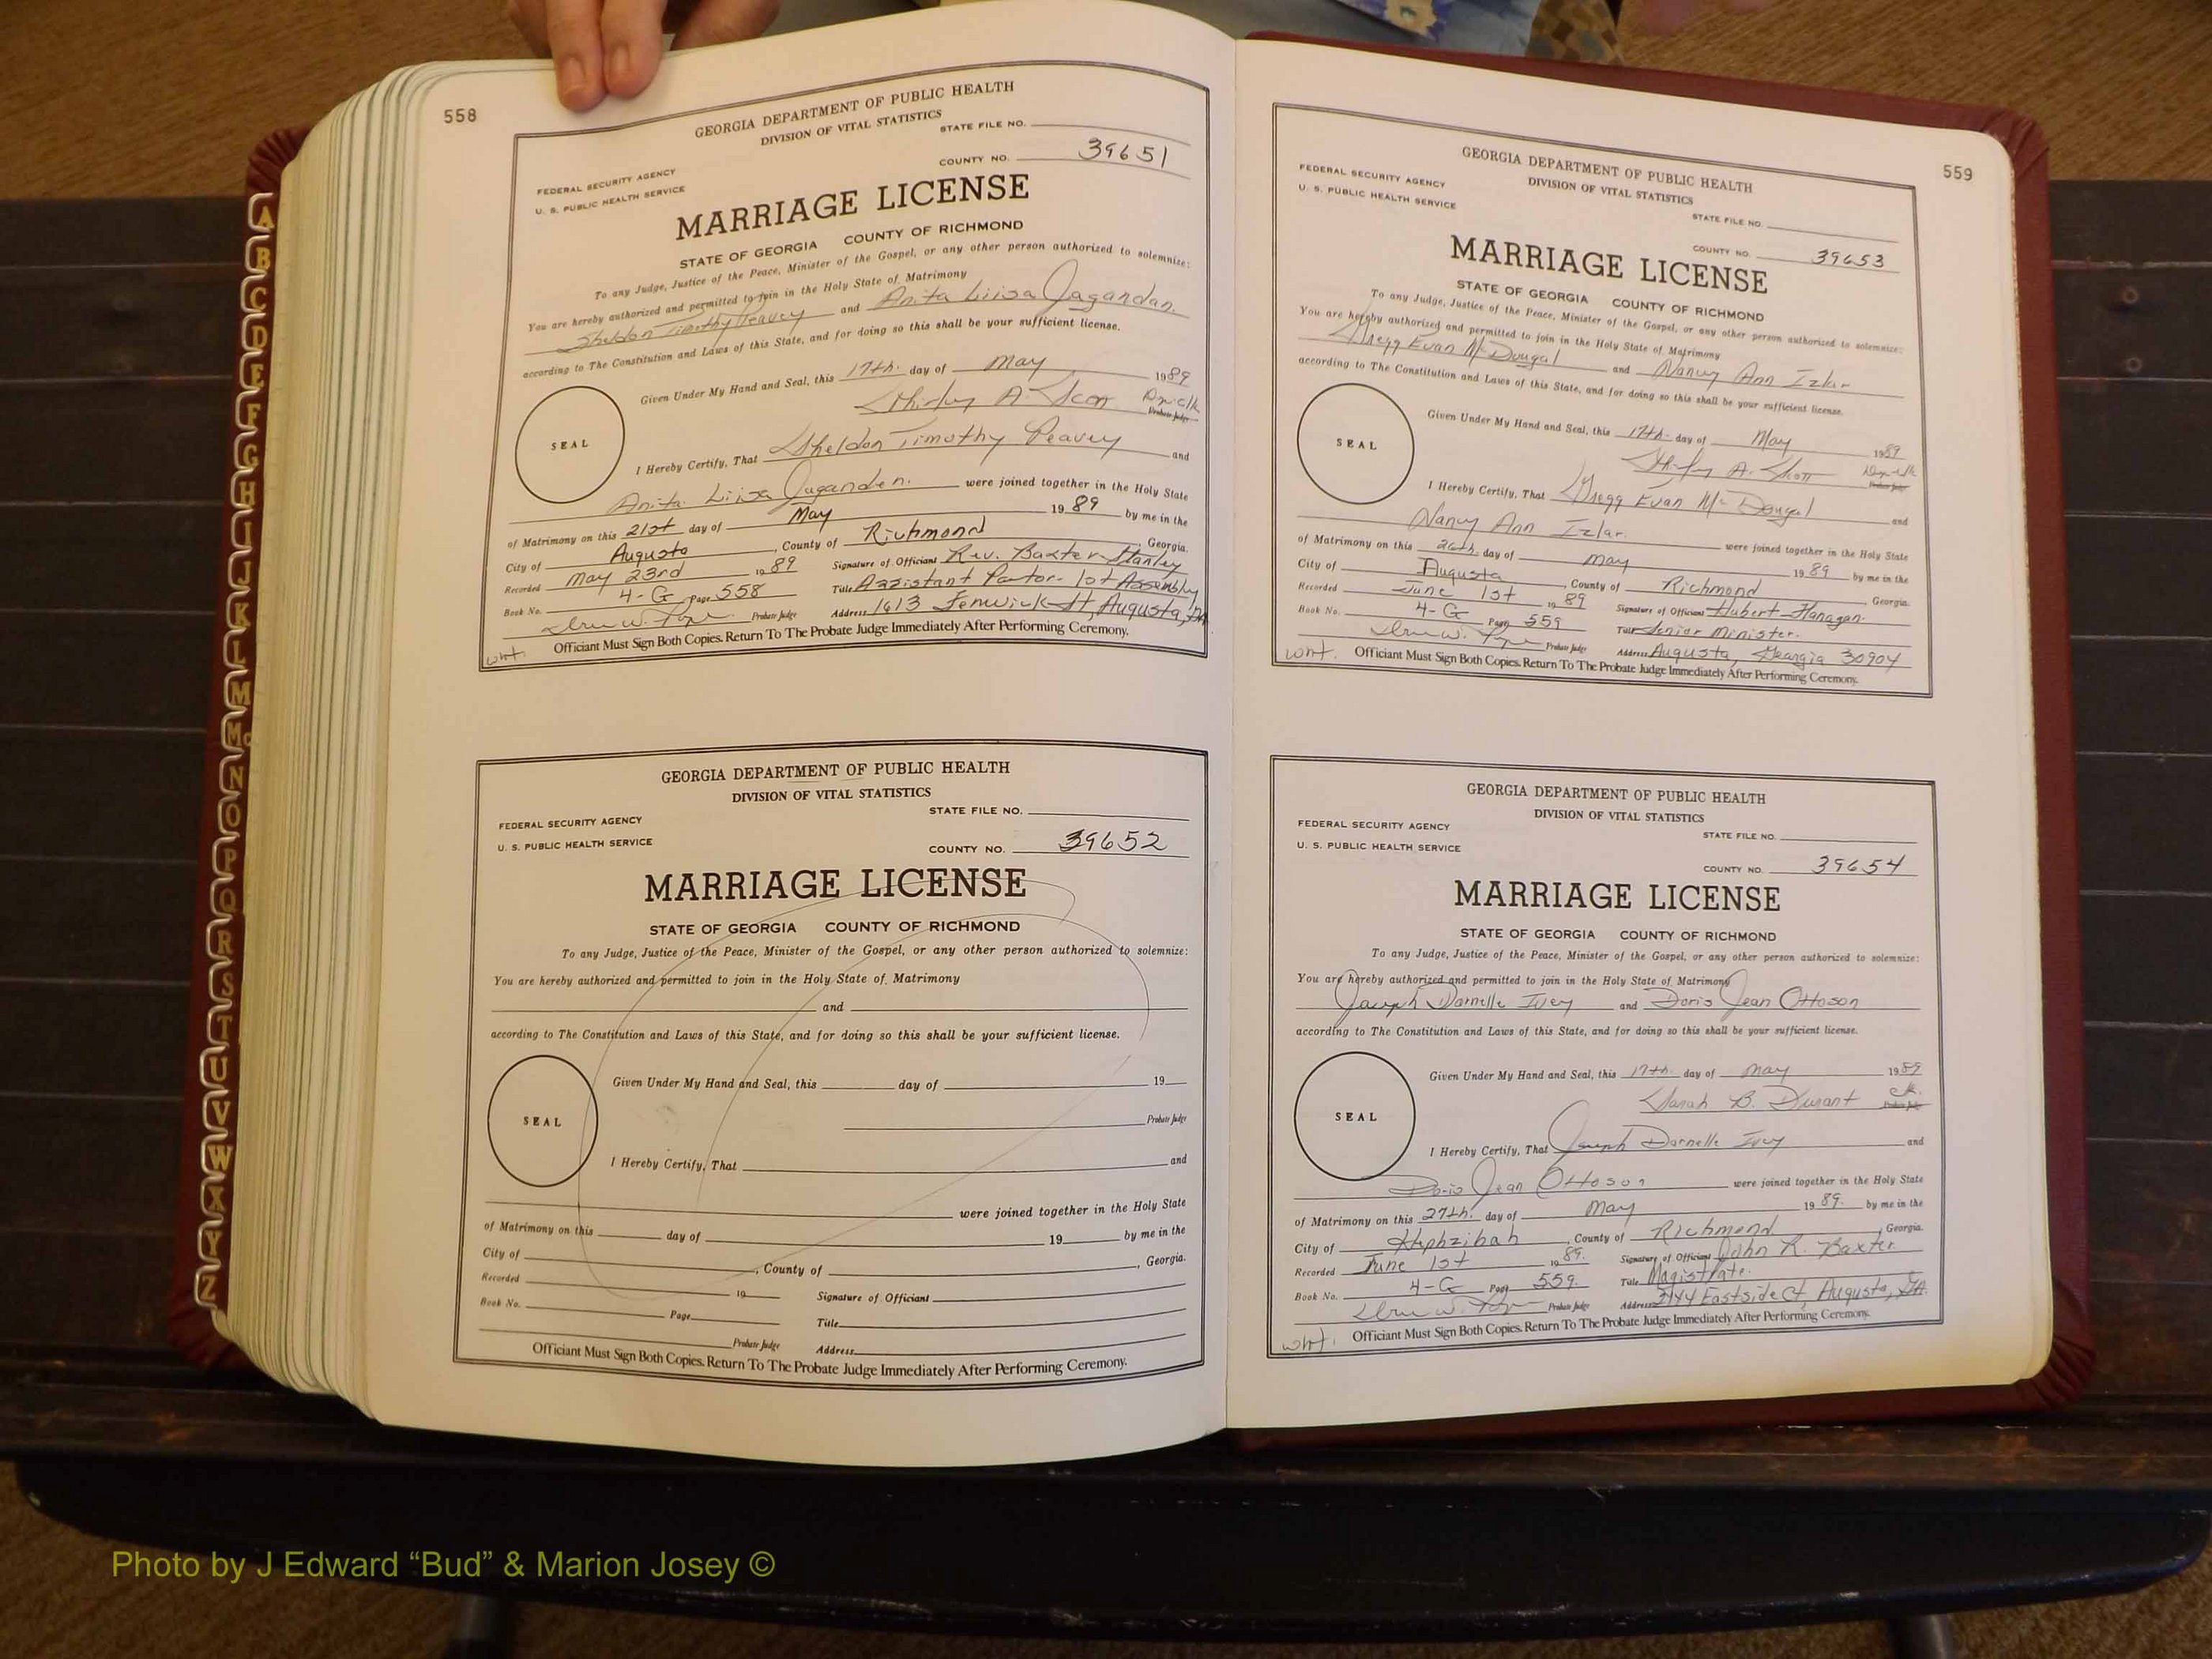 558
GEORGIA DEPARTMENT OF PUBLIC HEALTH
DIVISION OF VITAL STATISTICS
STATE FILE NO.
COUNTY NO. 39651
FEDERAL SECURITY AGENCY
U. S. PUBLIC HEALTH SERVICE
MARRIAGE LICENSE
STATE OF GEORGIA COUNTY OF RICHMOND
To any Judge, Justice of the Peace, Minister of the Gospel, or any other person authorized to solemnize:
You are hereby authorized and permitted to join in the Holy State of Matrimony
Sheldon Timothy Peavey and Anita Liisa Jagandan
according to The Constitution and Laws of this State, and for doing so this shall be your sufficient license.
Given Under My Hand and Seal, this 17th. day of May 1989
Shirley A. Scott Dep. clk
Probate Judge
SEAL
I Hereby Certify, That Sheldon Timothy Peavey and
Anita Liisa were joined together in the Holy State
of Matrimony on this 21st day of May 19 89 by me in the
City of Augusta, County of Richmond Georgia.
Recorded May 23rd 19 89 Signature of Officiant Rev. Baxter Stanley
Book No. 4-G Page 558 Title Assistant Pastor- 1st Assembly
Probate Judge Address 1613 Fenwick St, Augusta, GA
wht. Officiant Must Sign Both Copies. Return To The Probate Judge Immediately After Performing Ceremony.
GEORGIA DEPARTMENT OF PUBLIC HEALTH
DIVISION OF VITAL STATISTICS
STATE FILE NO.
FEDERAL SECURITY AGENCY
U. S. PUBLIC HEALTH SERVICE
COUNTY NO. 39652
MARRIAGE LICENSE
STATE OF GEORGIA COUNTY OF RICHMOND
To any Judge, Justice of the Peace, Minister of the Gospel, or any other person authorized to solemnize:
You are hereby authorized and permitted to join in the Holy State of Matrimony
and
according to The Constitution and Laws of this State, and for doing so this shall be your sufficient license.
Given Under My Hand and Seal, this day of 19
Probate Judge
SEAL
I Hereby Certify, That and
were joined together in the Holy State
of Matrimony on this day of 19 by me in the
City of , County of , Georgia.
Recorded 19 Signature of Officiant
Book No. Page Title
Probate Judge Address
Officiant Must Sign Both Copies. Return To The Probate Judge Immediately After Performing Ceremony.
559
GEORGIA DEPARTMENT OF PUBLIC HEALTH
DIVISION OF VITAL STATISTICS
FEDERAL SECURITY AGENCY
U. S. PUBLIC HEALTH SERVICE
STATE FILE NO.
COUNTY NO. 39653
MARRIAGE LICENSE
STATE OF GEORGIA COUNTY OF RICHMOND
To any Judge, Justice of the Peace, Minister of the Gospel, or any other person authorized to solemnize:
You are hereby authorized and permitted to join in the Holy State of Matrimony
Gregg Evan McDougal and Nancy Ann Izlar
according to The Constitution and Laws of this State, and for doing so this shall be your sufficient license.
Given Under My Hand and Seal, this 17th. day of May 1989
Shirley A. Scott Dep. clk
Probate Judge
SEAL
I Hereby Certify, That Gregg Evan McDougal and
Nancy Ann Izlar. were joined together in the Holy State
of Matrimony on this 26th. day of May 19 89 by me in the
City of Augusta, County of Richmond Georgia.
Recorded June 1st 19 89 Signature of Officiant Hubert Flanagan.
Book No. 4-G Page 559 Title Senior Minister.
Probate Judge Address Augusta, Georgia 30904
wht. Officiant Must Sign Both Copies. Return To The Probate Judge Immediately After Performing Ceremony.
GEORGIA DEPARTMENT OF PUBLIC HEALTH
DIVISION OF VITAL STATISTICS
FEDERAL SECURITY AGENCY
U. S. PUBLIC HEALTH SERVICE
STATE FILE NO.
COUNTY NO. 39654
MARRIAGE LICENSE
STATE OF GEORGIA COUNTY OF RICHMOND
To any Judge, Justice of the Peace, Minister of the Gospel, or any other person authorized to solemnize:
You are hereby authorized and permitted to join in the Holy State of Matrimony
Joseph Darnelle Ivey and Doris Jean Ottoson
according to The Constitution and Laws of this State, and for doing so this shall be your sufficient license.
Given Under My Hand and Seal, this 17th. day of May 1989
Sarah B. Durant clk.
Probate Judge
SEAL
I Hereby Certify, That Joseph Darnelle Ivey and
Doris Jean Ottoson were joined together in the Holy State
of Matrimony on this 27th. day of May 19 89. by me in the
City of Hephzibah, County of Richmond, Georgia.
Recorded June 1st 19 89. Signature of Officiant John R. Baxter
Book No. 4-G Page 559. Title Magistrate.
Probate Judge Address 2144 Eastside Ct, Augusta, GA.
wht. Officiant Must Sign Both Copies. Return To The Probate Judge Immediately After Performing Ceremony.
A
B
C
D
E
F
G
H
I
J
K
L
M
Mc
N
O
P
Q
R
S
T
U
V
W
X
Y
Z
Photo by J Edward “Bud” & Marion Josey ©